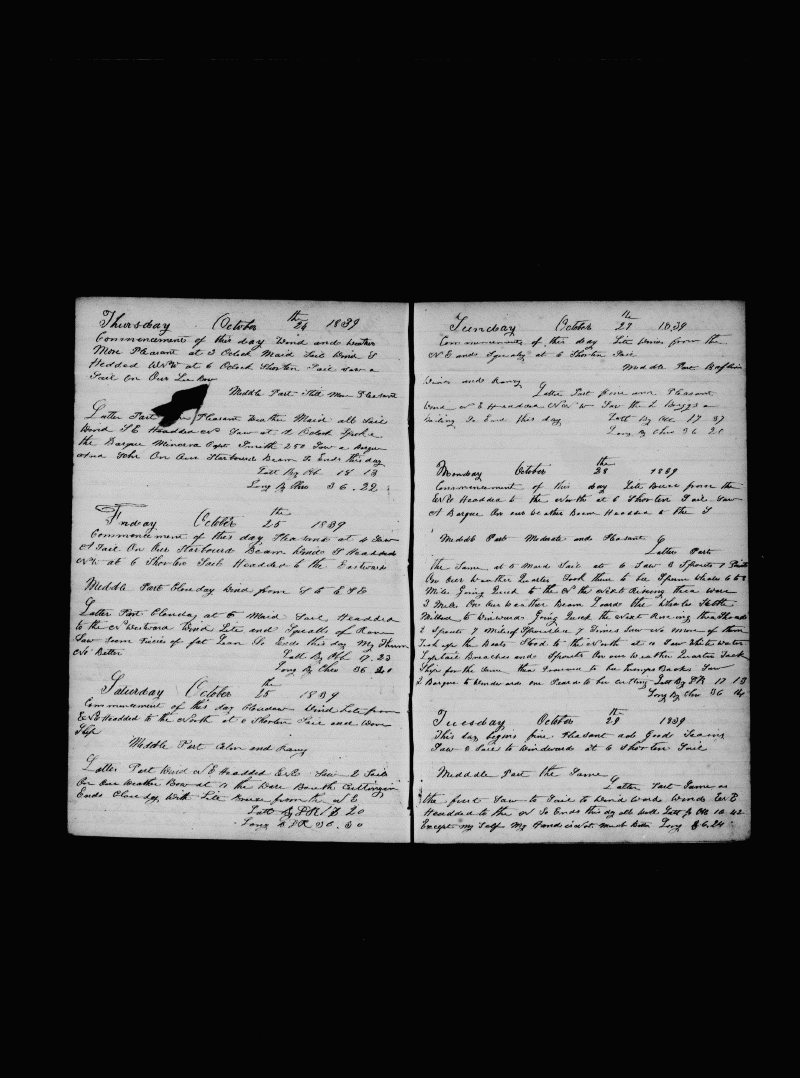 Thursday October 24th 1839
Commencement of this day Wind and weather
More Pleasant at 3 Oclock Maid Sail Wind S
Hedded WNW at 6 Oclock Shorten Sail saw a
Sail on Our Lee Bow
Middle Part Still More Pleasant
Latter Part Pleasant Weather Maid all Sail
Wind S E Headded N Saw at Oclock Spoke
the Barque Minerva Capt Smith 250 Saw a Barque
and Schr On Our Starboard Beam So Ends this day
Latt By Ob 18 13
Long By Chro 36.22
Friday October 25th 1839
Commencement of this day Pleasant at 4 Saw
A Sail On Our Starbourd Beam Wind S Headded
at 6 Shorten Sail Headded to the Eastward
Middle Part Clouday Wind from S to E S E
Latter Part Clouday at 6 Maid Sail Headded
to the N Westward Wind Lite and Squalls of Rane
Saw Some Pieces of fat Lean So Ends this day My Thum
No Better
Latt By Ob 17.23
Long By Chro 36 20
Saturday October 25th 1839
Commencement of this day Wind Lite from
E Headded to the North at 6 Shorten Sail and Wore
Ship
Middle Part Calm and Rany
Latter Part Wind N E Headded Saw 2 Sails
On Our Weather Bow at the
Ends Clouday With Lite breeze from the N E
Latt By DR 17 20
Long By DR 36.30
Sunday October 27th 1839
Commencement of this day Lite Winds from the
N E and Squaly at 6 Shorten Sail
Middle Part Bafling
Winds and Rany
Latter Part fine and Pleasant
Wind N E Headded N W Saw the L Briggs a
So Ends this day Latt By Ob 17 37
Long By Chro 36 21
Monday October 28th 1839
Commencement of this day Lite Brese from the
Headded to the North at 6 Shorten Sail Saw
A Barque On our Weather Beam Headded to the S
Middle Part Moderate and Pleasant
Latter Part
the Same at 5 Maid Sail at 6 Saw
On Our Weather Quarter Took them to be Sperm Whales 6 to 8
Miles Going Quick to the N the Next Rising thea ware
3 Miles On Our Weather Beam Loard the Whales
to Windward Going Quick the Next Rising
2 Spouts 7 Miles of Spouted 7 Times Saw No More of them
Took up the Boats Stood to the North at 11 Saw White Water
Breaches and Spouts On our Weather Quarter Tack
Ship for the Same thea Proved to be humps Backs Saw
2 Barque to Windward one Peard to be cuting Latt By DR 17 13
Long By Chro 36 14
Tuesday October 29th 1839
This day begins fine Pleasant and Good
Saw a Sail to Windward at 6 Shorten Sail
Midddle Part the Same
Latter Part Same as
the first Saw to Sail to Wind Ward Winds
Headded to the N So Ends this day all Well Latt By Ob 16 42
Except my Self My Hand is Not much Better Long 36.24